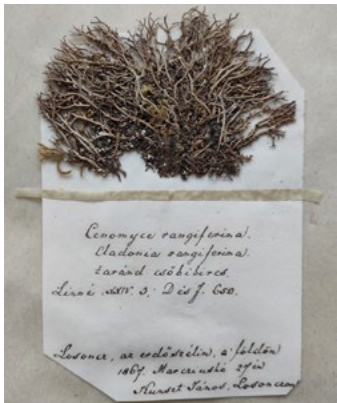 Cenomyce rangiferina.
Cladonia rangiferina.
Linné XXIV. 3. Diós J. 650.
Losonc, az erdőszélin, a földön
1867. Marczius 27én
Kunszt János, Losoncon